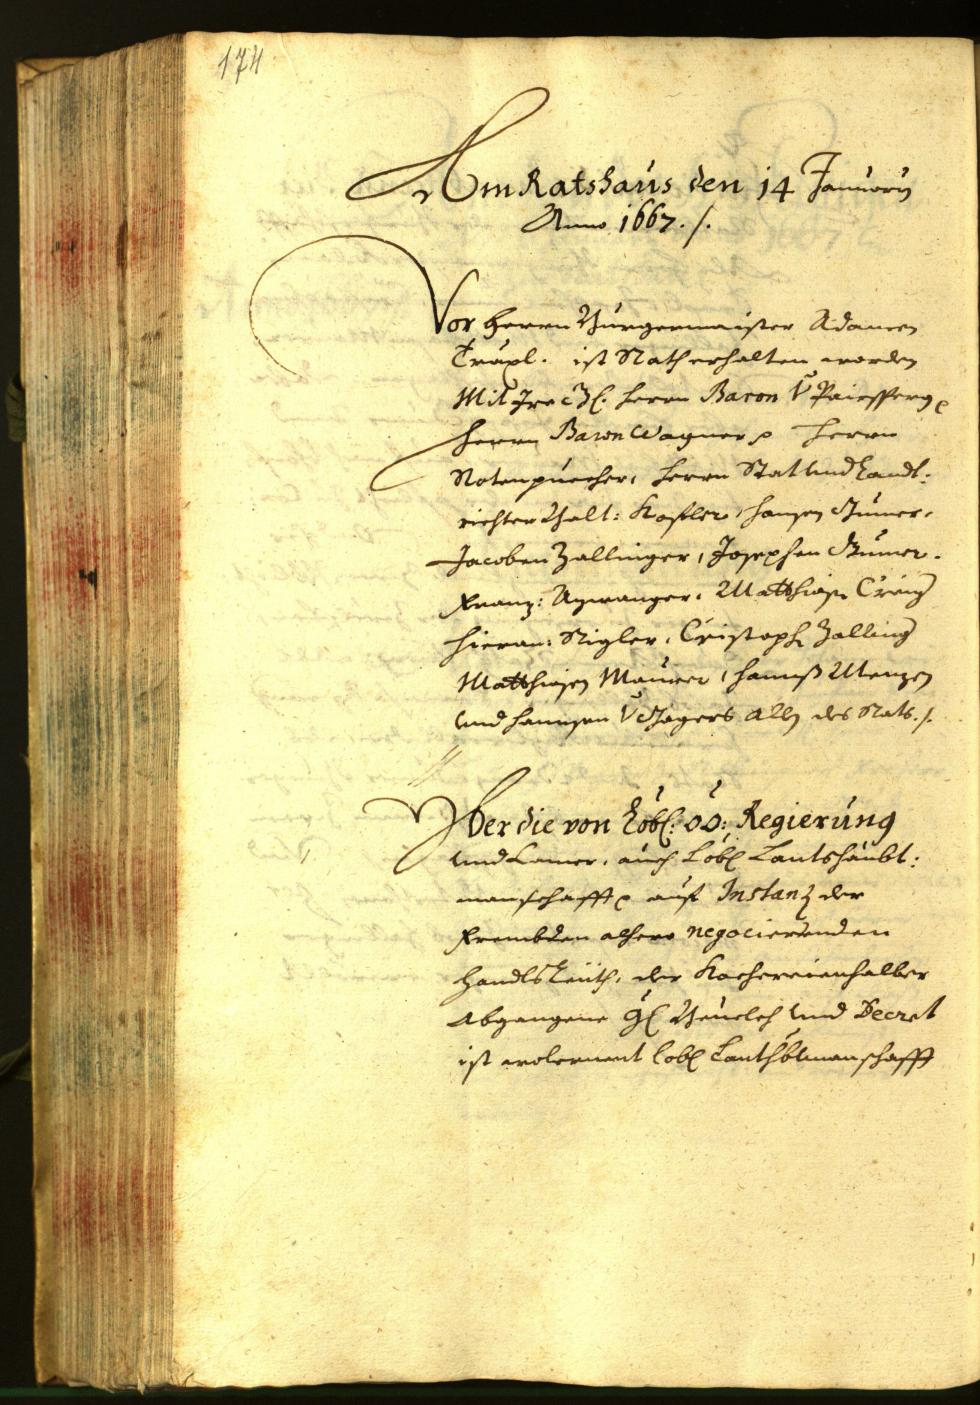 174
Am Ratshaus den 14 Januarij
Anno 1667 ./.
Vor Herrn Burgermaister Adamen
Träxl. ist Rath erhalten worden
Mit Herrn Baron
Herrn Baron Wagner Herrn
Rotenpuecher, Herrn Stat und Landt:
richter Hansen Gumer,
Jacoben Zallinger, Josephen Gumer.
Franz: Azwanger. Matthiasn
Hieran: Rigler. Cristoph Zalling
Matthiasen Maurer, Hannß
und Hannsen Jägers alls des Rats ./.
Yber die von Löbl: OÖ: Regierung
und Camer, auch Löbl Lantshaubt:
manschafft auf Instanz der
frembden alhero negocierenden
Handlsleüth, der halber
Abgangene und Decret
ist wolernent lobl Lantshbtmanschafft